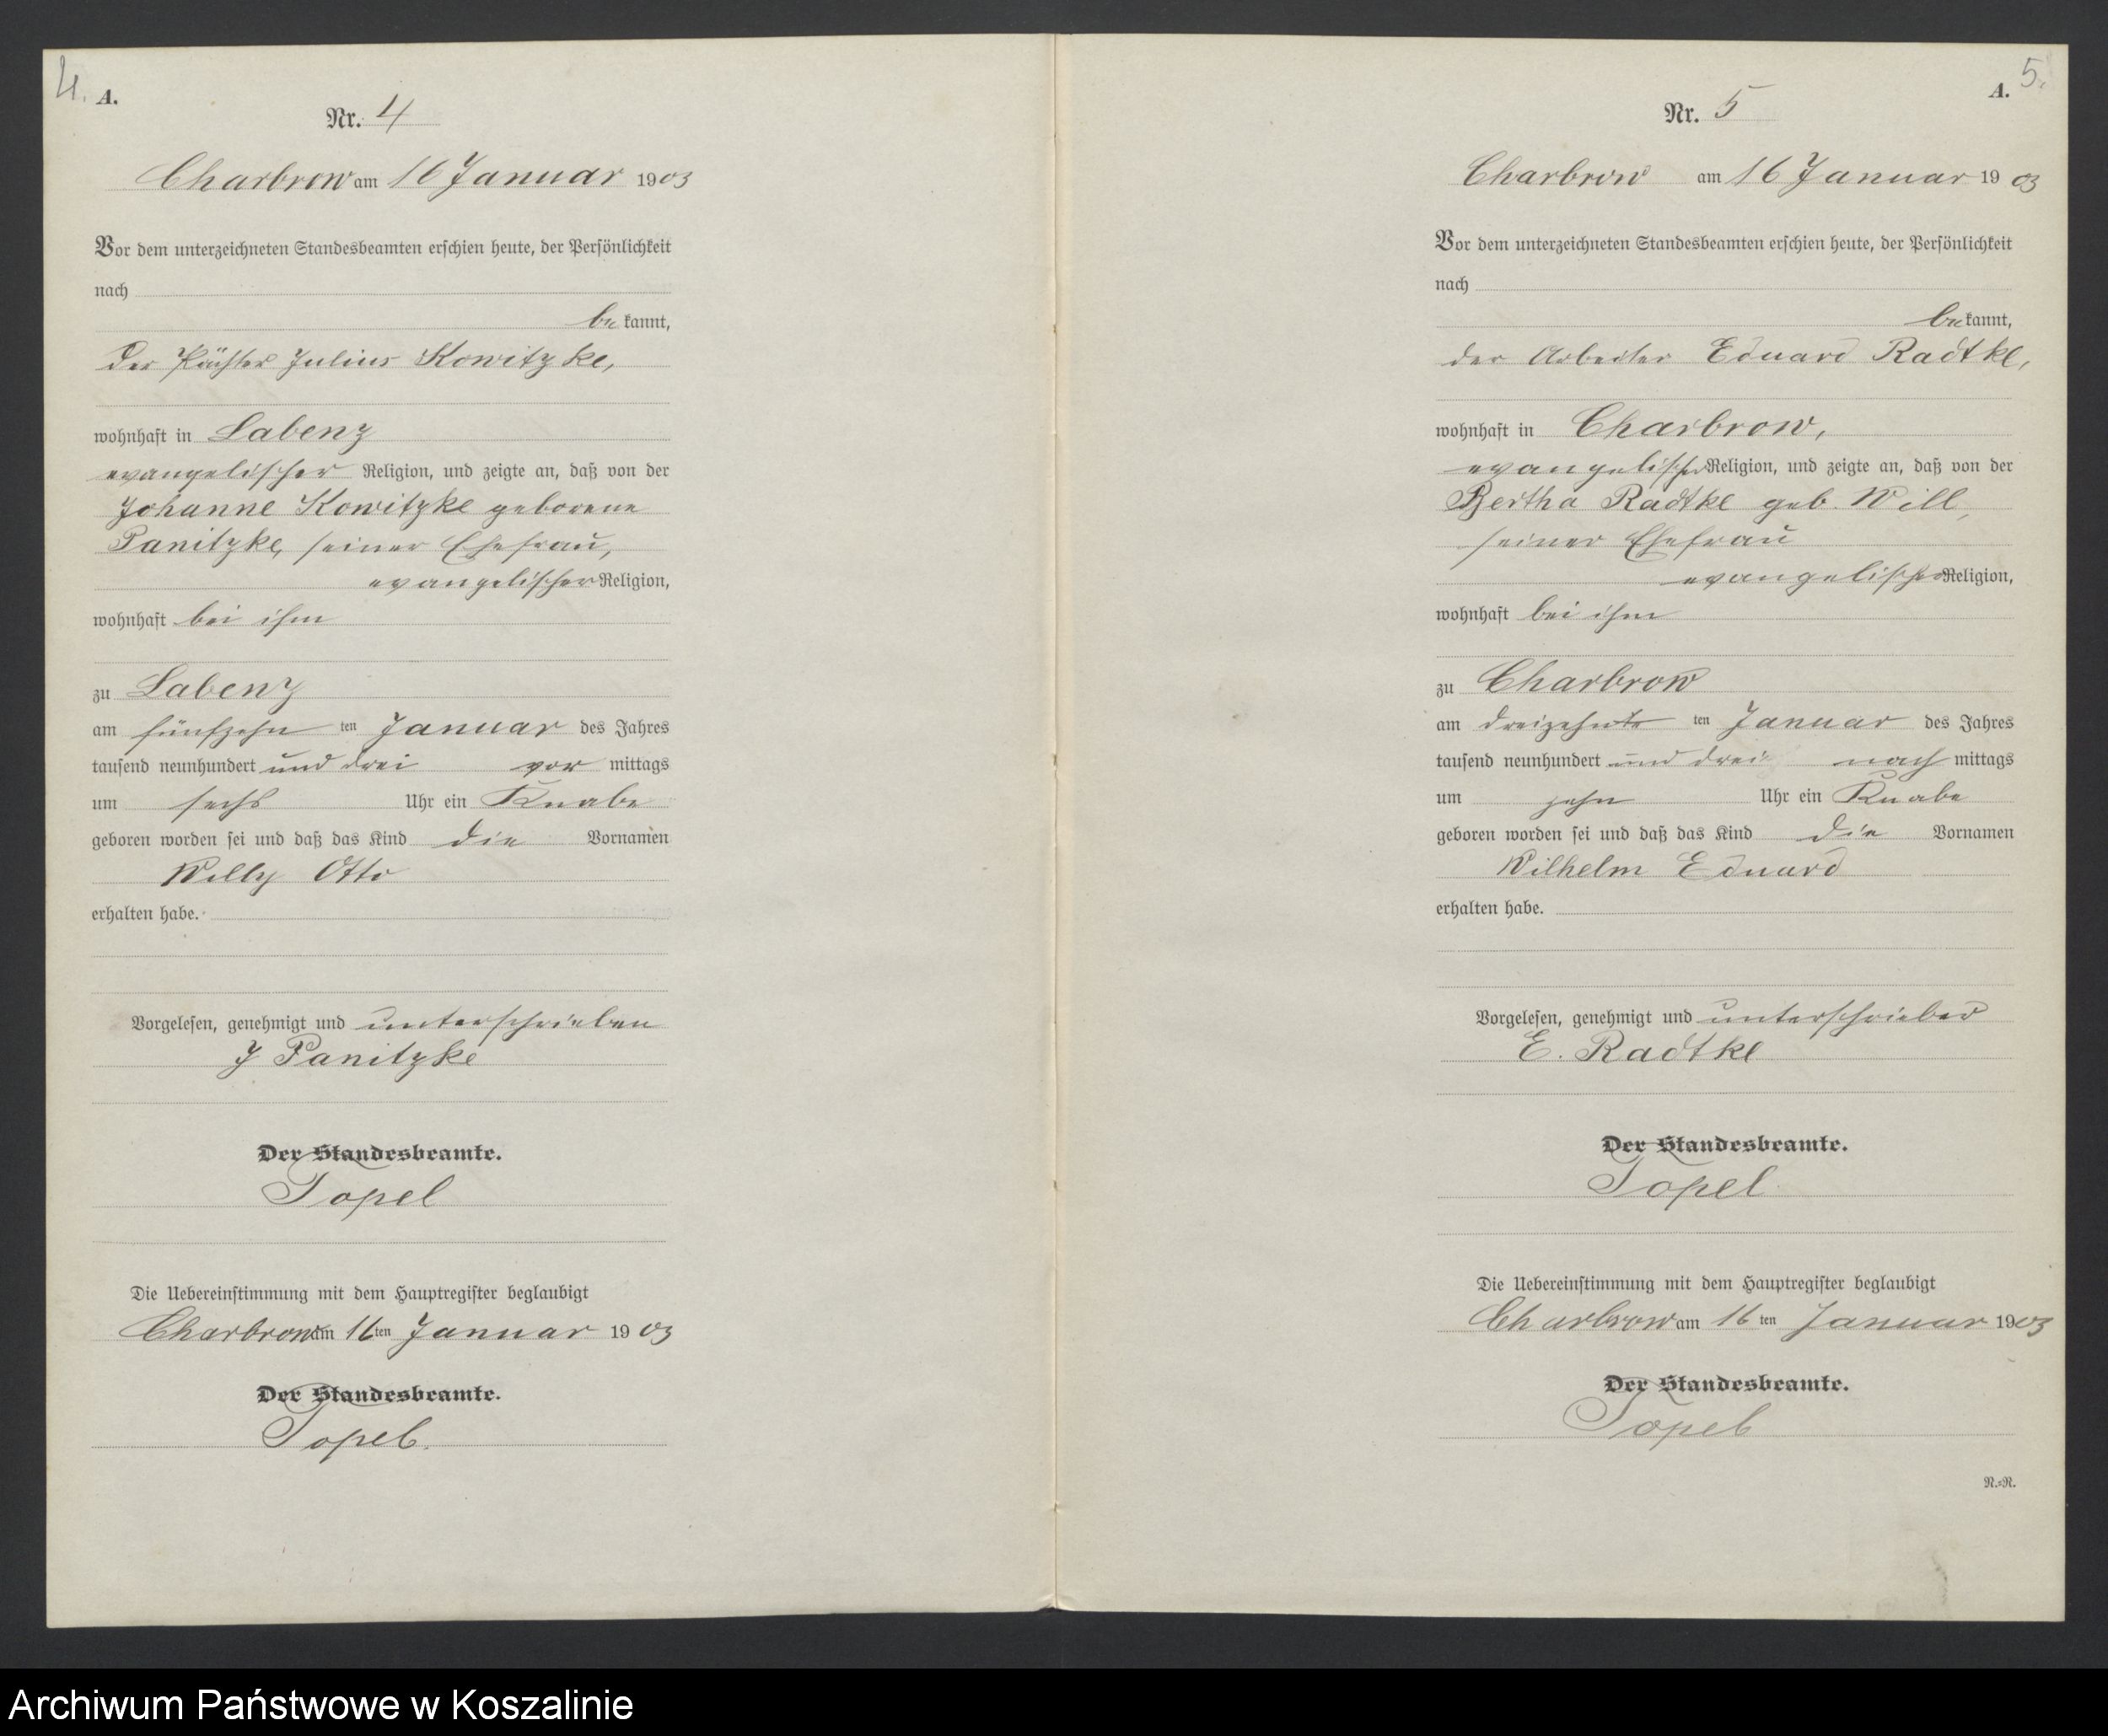 4. A.
Nr. 4
Charbrow am 16 Januar 1903
Vor dem unterzeichneten Standesbeamten erschien heute, der Persönlichkeit
nach
bekannt,
der Pächter Julius Kowitzke,
wohnhaft in Labenz
evangelischer Religion, und zeigte an, daß von der
Johanne Kowitzke geborene
Panitzke, seiner Ehefrau,
evangelischer Religion,
wohnhaft bei ihm
zu Labenz
am fünfzehn ten Januar des Jahres
tausend neunhundert und drei vor mittags
um sechs Uhr ein Knabe
geboren worden sei und daß das Kind die Vornamen
Willy Otto
erhalten habe.
Vorgelesen, genehmigt und unterschrieben
J Panitzke
Der Standesbeamte.
Topel
Die Uebereinstimmung mit dem Hauptregister beglaubigt
Charbrow am 16ten Januar 1903
Der Standesbeamte.
Topel.
A. 5.
Nr. 5
Charbrow am 16 Januar 1903
Vor dem unterzeichneten Standesbeamten erschien heute, der Persönlichkeit
nach
bekannt,
der Arbeiter Eduard Radtke,
wohnhaft in Charbrow,
evangelischer Religion, und zeigte an, daß von der
Bertha Radtke geb. Will,
seiner Ehefrau
evangelischer Religion,
wohnhaft bei ihm
zu Charbrow
am dreizehnte ten Januar des Jahres
tausend neunhundert und drei nach mittags
um zehn Uhr ein Knabe
geboren worden sei und daß das Kind die Vornamen
Wilhelm Eduard
erhalten habe.
Vorgelesen, genehmigt und unterschrieben
E. Radtke
Der Standesbeamte.
Topel
Die Uebereinstimmung mit dem Hauptregister beglaubigt
Charbrow am 16 ten Januar 1903
Der Standesbeamte.
Topel
N.=R.
Archiwum Państwowe w Koszalinie